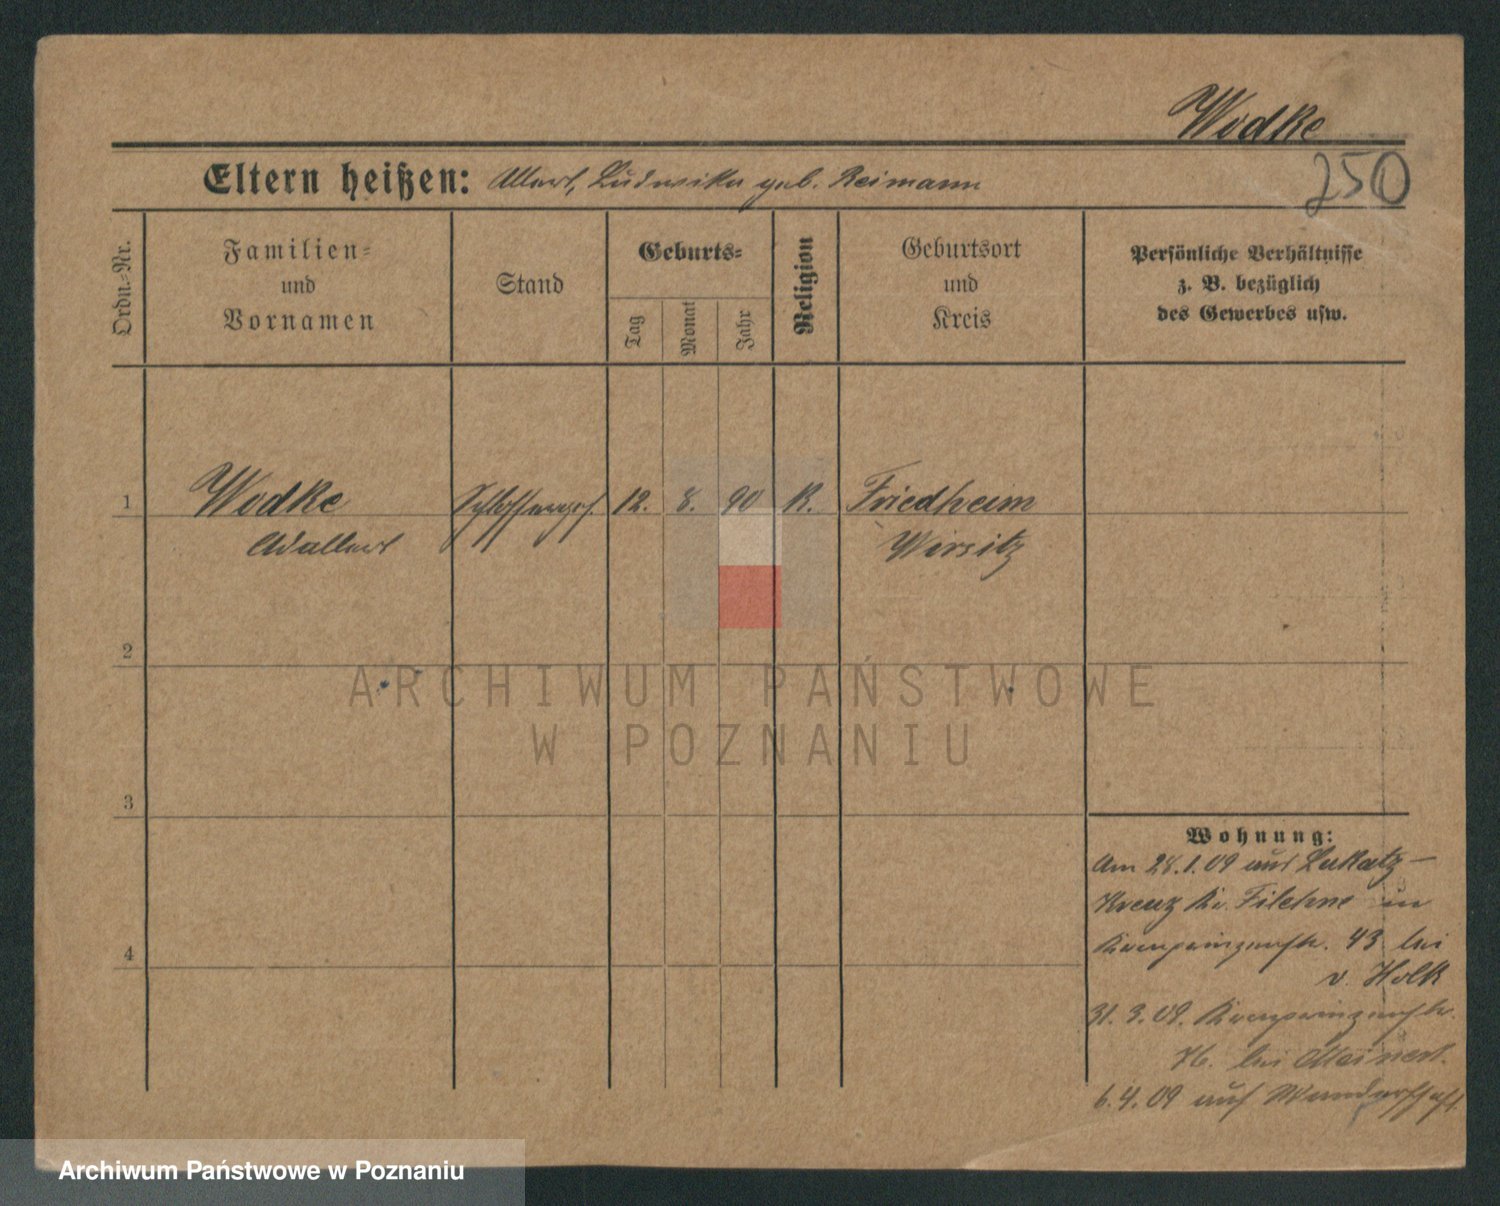 Wodke
250
Eltern heißen: Albert, Ludwika geb. Reimann
Ordn.-Nr.
Familien- und Vornamen
Stand
Geburts-
Tag
Monat
Jahr
Religion
Geburtsort und Kreis
Persönliche Verhältnisse
z. B. bezüglich
des Gewerbes usw.
1 Wodke Schlosserges. 12. 8. 90 K. Friedheim
Adalbert Wirsitz
2
3
4
Wohnung:
Am 28.1.09 aus Lukatz-
Kreuz Kr. Filehne in
Kronprinzenstr. 43 bei
v. Holk
31.3.09. Kronprinzenstr.
bei Meinert.
6.4.09 auf Wanderschaft.
ARCHIWUM PAŃSTWOWE
W POZNANIU
Archiwum Państwowe w Poznaniu